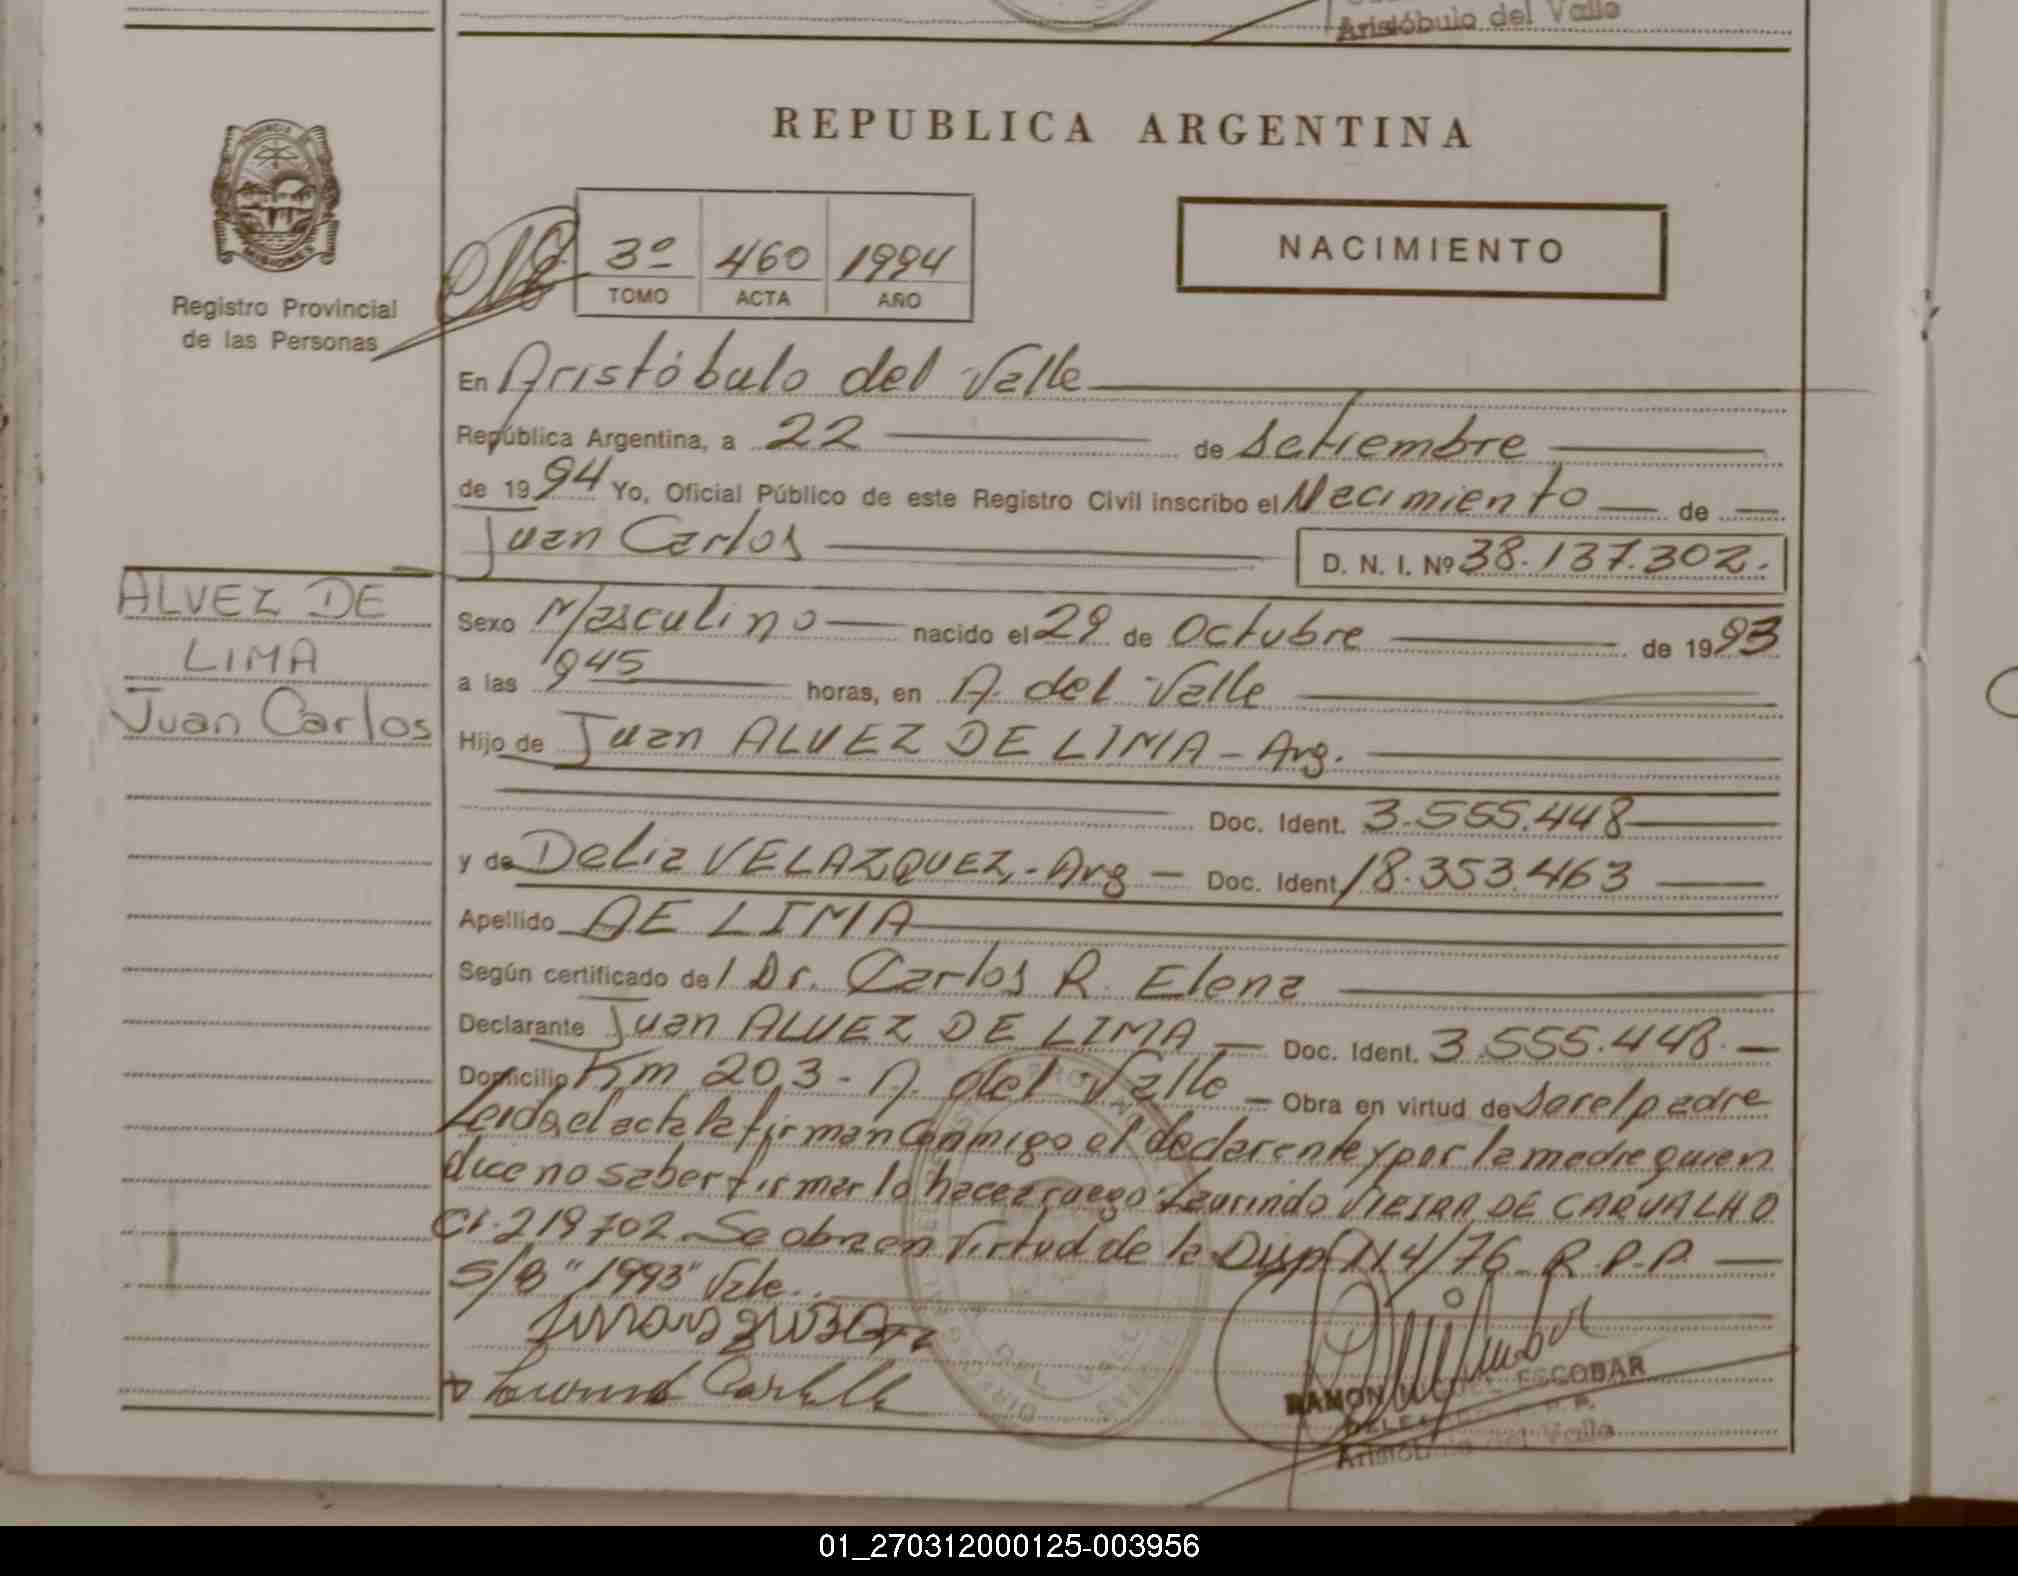 Aristóbulo del Valle
REPUBLICA ARGENTINA
PROVINCIA
MISIONES
Registro Provincial
de las Personas
3º 460 1994
TOMO ACTA AÑO
NACIMIENTO
En Aristóbulo del Valle
República Argentina, a 22 de Setiembre
de 1994 Yo, Oficial Público de este Registro Civil inscribo el Nacimiento de
Juan Carlos D. N. I. Nº 38.137.302.
ALVEZ DE
LIMA
Juan Carlos
Sexo Masculino nacido el 29 de Octubre de 1993
a las 945 horas, en A. del Valle
Hijo de Juan ALVEZ DE LIMA - Arg.
Doc. Ident. 3.555.448
y de Delia VELAZQUEZ.- Arg - Doc. Ident. 18.353.463
Apellido DE LIMA
Según certificado del Dr. Carlos R. Elena
Declarante Juan ALVEZ DE LIMA - Doc. Ident. 3.555.448. -
Domicilio Km 203 - A. del Valle - Obra en virtud de ser el padre
Leida el acta la firman conmigo el declarante y por la madre quien
dice no saber firmar lo hace a ruego: Laurindo VIEIRA DE CARVALHO
CI. 219702. Se obra en virtud de la Disp. 114/76 R.P.P.
S/B "1993" Vale.
RAMON MIGUEL ESCOBAR
Aristóbulo del Valle
01_270312000125-003956